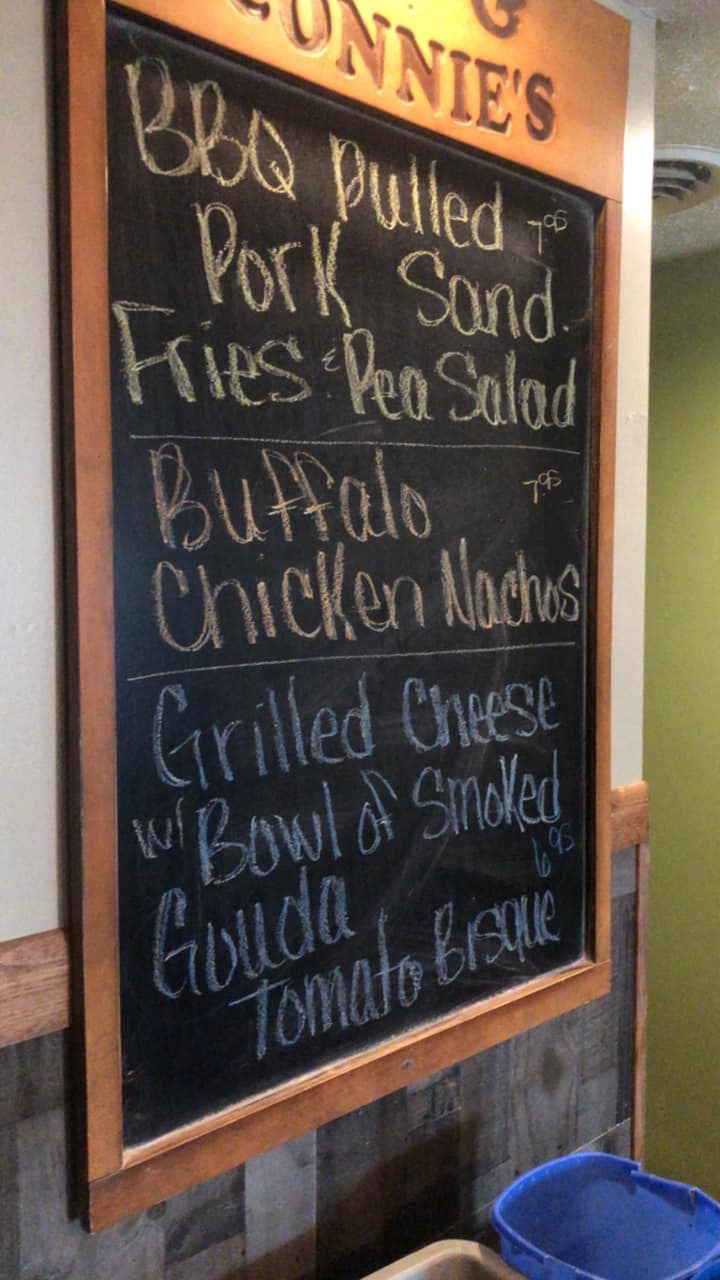 G
CONNIE'S
BBQ Pulled 7.95
Pork Sand.
Fries & Pea Salad
Buffalo 7.95
Chicken Nachos
Grilled Cheese
w/ Bowl of Smoked
6.95
Gouda
Tomato Bisque